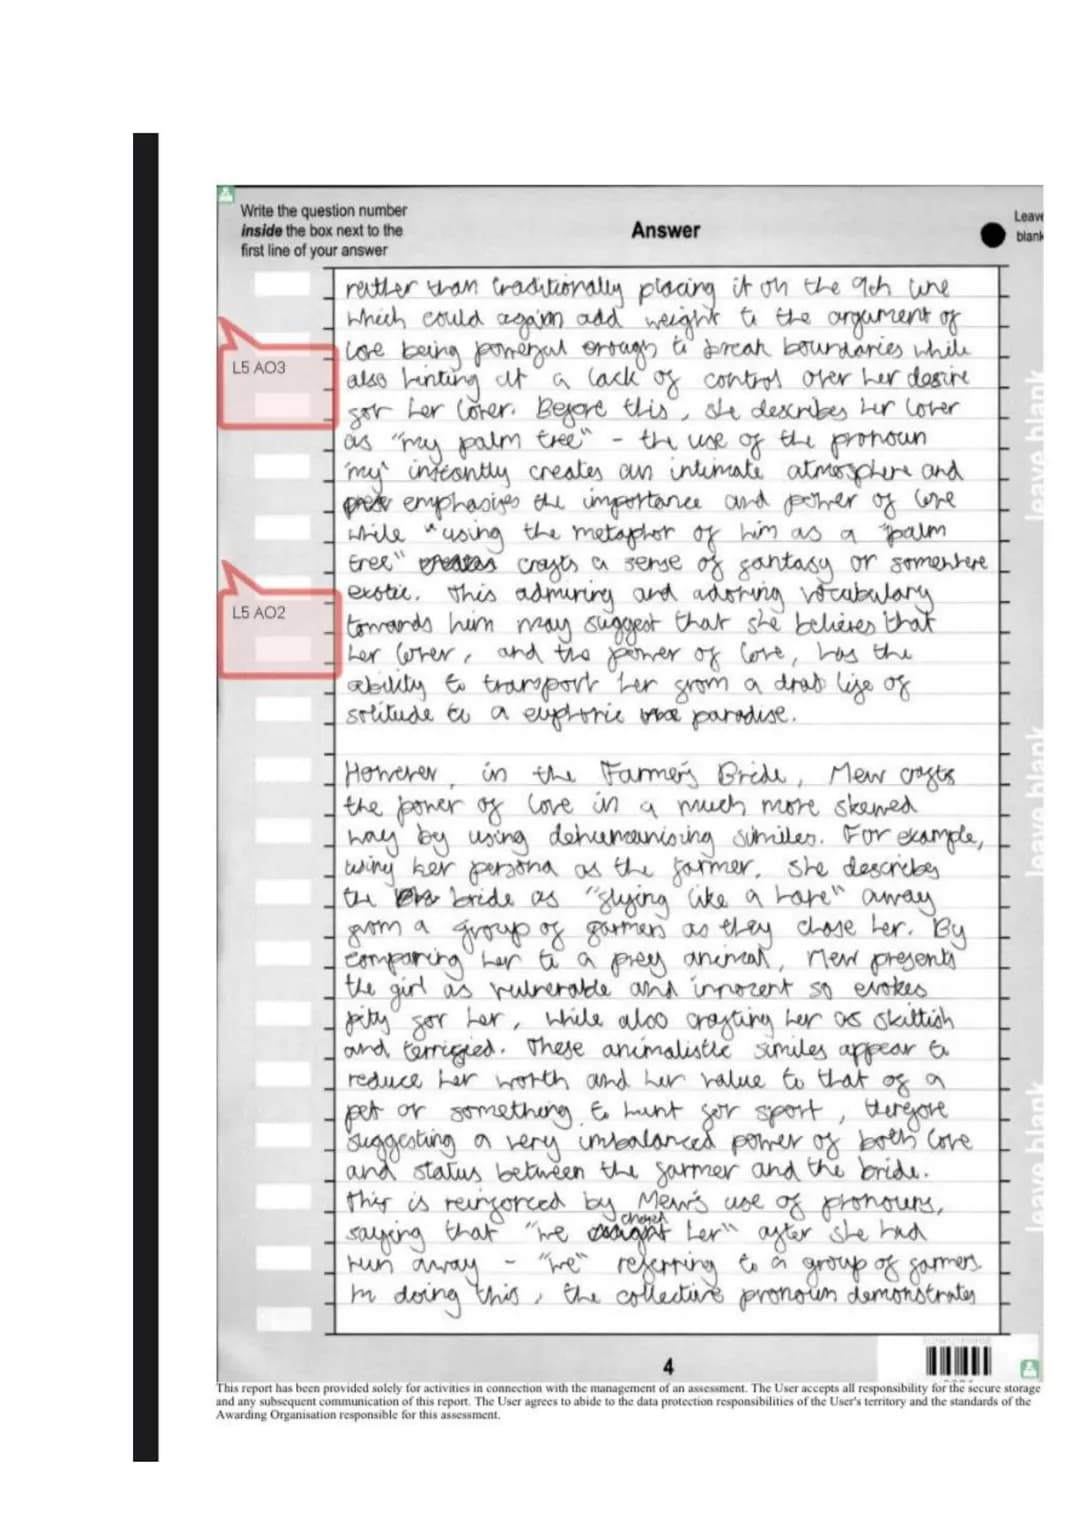 Write the question number
inside the box next to the
first line of your answer
Answer
Leave
blank
rather than traditionally placing it on the 9th line
which could again add weight to the argument of
love being powerful enough to break boundaries while
L5 AO3
also hinting at a lack of control over her desire
for her lover. Before this, she describes her lover
as "my palm tree" - the use of the pronoun
'my' instantly creates an intimate atmosphere and
emphasises the importance and power of love
while "using the metaphor of him as a "palm
tree" crafts a sense of fantasy or somewhere
exotic. This admiring and adoring vocabulary
L5 AO2
towards him may suggest that she believes that
her lover, and the power of love, has the
ability to transport her from a drab life of
solitude to a euphoric paradise.
However, in the Farmer's Bride, Mew crafts
the power of love in a much more skewed
way by using dehumanising similes. For example,
using her persona as the farmer, she describes
the bride as "flying like a hare" away
from a group of farmers as they chase her. By
comparing her to a prey animal, Mew presents
the girl as vulnerable and innocent so evokes
pity for her, while also crafting her as skittish
and terrified. These animalistic similes appear to
reduce her worth and her value to that of a
pet or something to hunt for sport, therefore
suggesting a very imbalanced power of both love
and status between the farmer and the bride.
This is reinforced by Mew's use of pronouns,
saying that "we chased her" after she had
run away - "we" referring to a group of farmers.
In doing this, the collective pronoun demonstrates
leave blank
leave blank
leave blank
4
This report has been provided solely for activities in connection with the management of an assessment. The User accepts all responsibility for the secure storage
and any subsequent communication of this report. The User agrees to abide to the data protection responsibilities of the User's territory and the standards of the
Awarding Organisation responsible for this assessment.